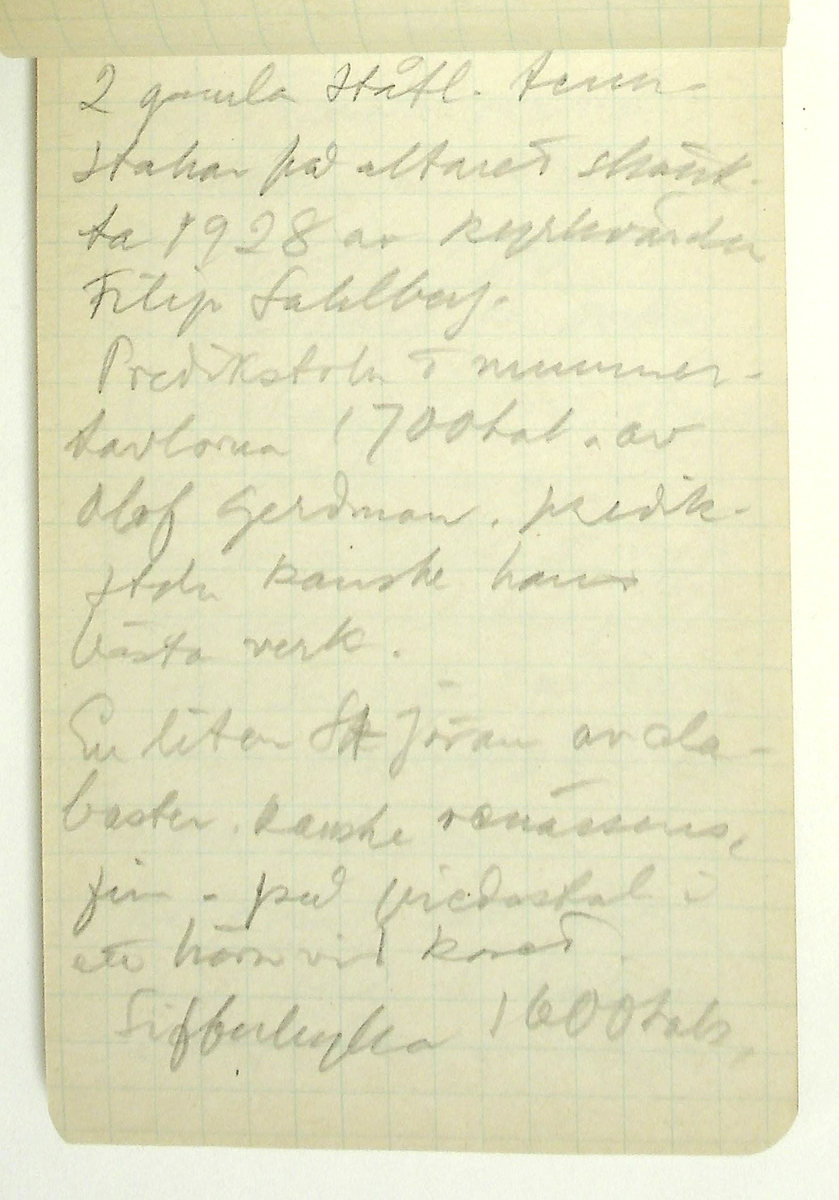 2 gamla ståtl. tenn-
stakar på altaret skänk-
ta 1928 av kyrkvärden
Filip Sahlberg.
Predikstolen o nummer-
tavlorna 1700tal. av
Olof Gerdman. predik-
stolen kanske hans
bästa verk.
En liten St Jöran av ala-
baster. kanske renässans,
fin - på piedestal i
ett hörn vid koret.
1600tals,